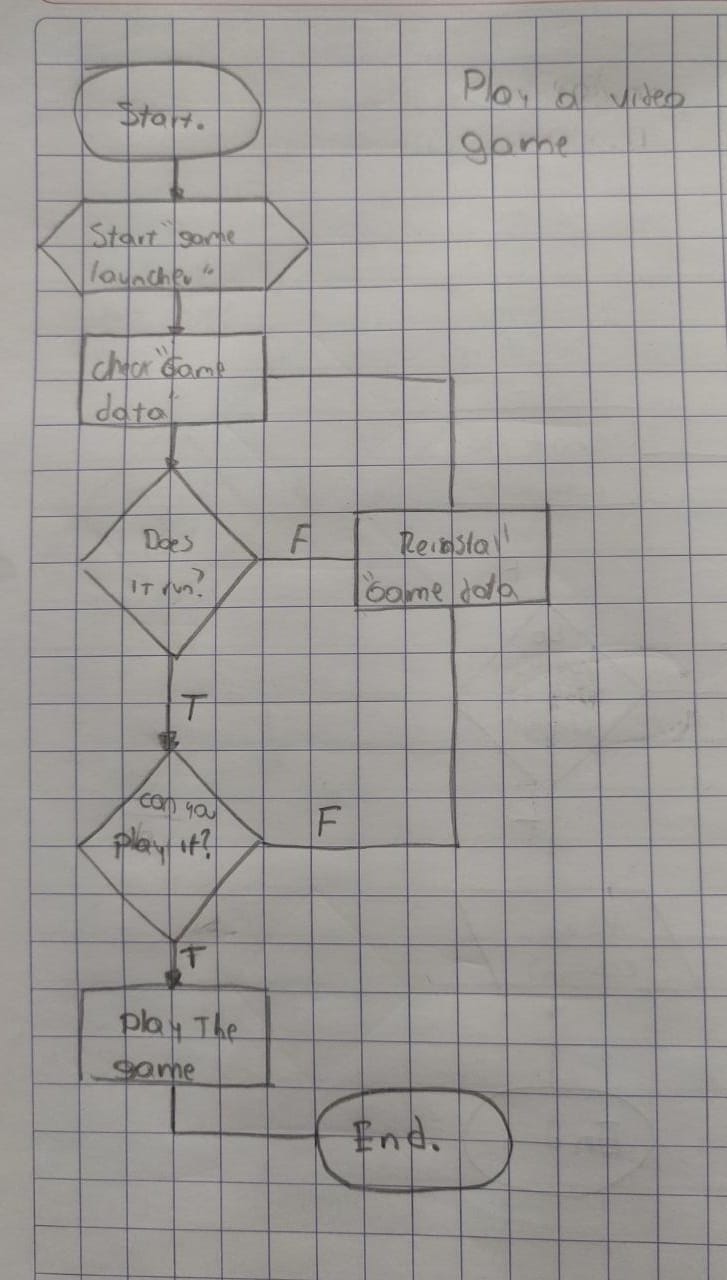 Play a video
game
Start.
Start "game
launcher"
check "Game
data"
Does
IT run?
F
Reinstall
"Game data
T
can you
play it?
F
T
Play The
game
End.